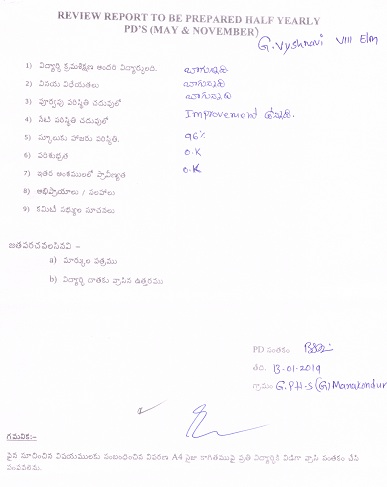 REVIEW REPORT TO BE PREPARED HALF YEARLY
PD'S (MAY & NOVEMBER)
G. Vyshnavi VIII E/m
1) విద్యార్థి క్రమశిక్షణ అందరి విద్యార్థులది. బాగున్నది
2) వినయ విధేయతలు బాగున్నది
3) పూర్వపు పరిస్థితి చదువులో బాగున్నది
4) నేటి పరిస్థితి చదువులో Improvement ఉన్నది.
5) స్కూలుకు హాజరు పరిస్థితి. 96%
6) పరిశుభ్రత O.K
7) ఇతర అంశములలో ప్రావీణ్యత O.K
8) అభిప్రాయాలు / సలహాలు
9) కమిటీ సభ్యుల సూచనలు
జతపరచవలసినవి :-
a) మార్కుల పత్రము
b) విద్యార్థి దాతకు వ్రాసిన ఉత్తరము
PD సంతకం
తేది. 13-01-2019
గ్రామం G.P.H-S (G) Manakondur
గమనిక:-
పైన సూచించిన విషయములకు సంబంధించిన వివరణ A4 సైజు కాగితముపై ప్రతి విద్యార్థికి విడిగా వ్రాసి సంతకం చేసి
పంపవలెను.